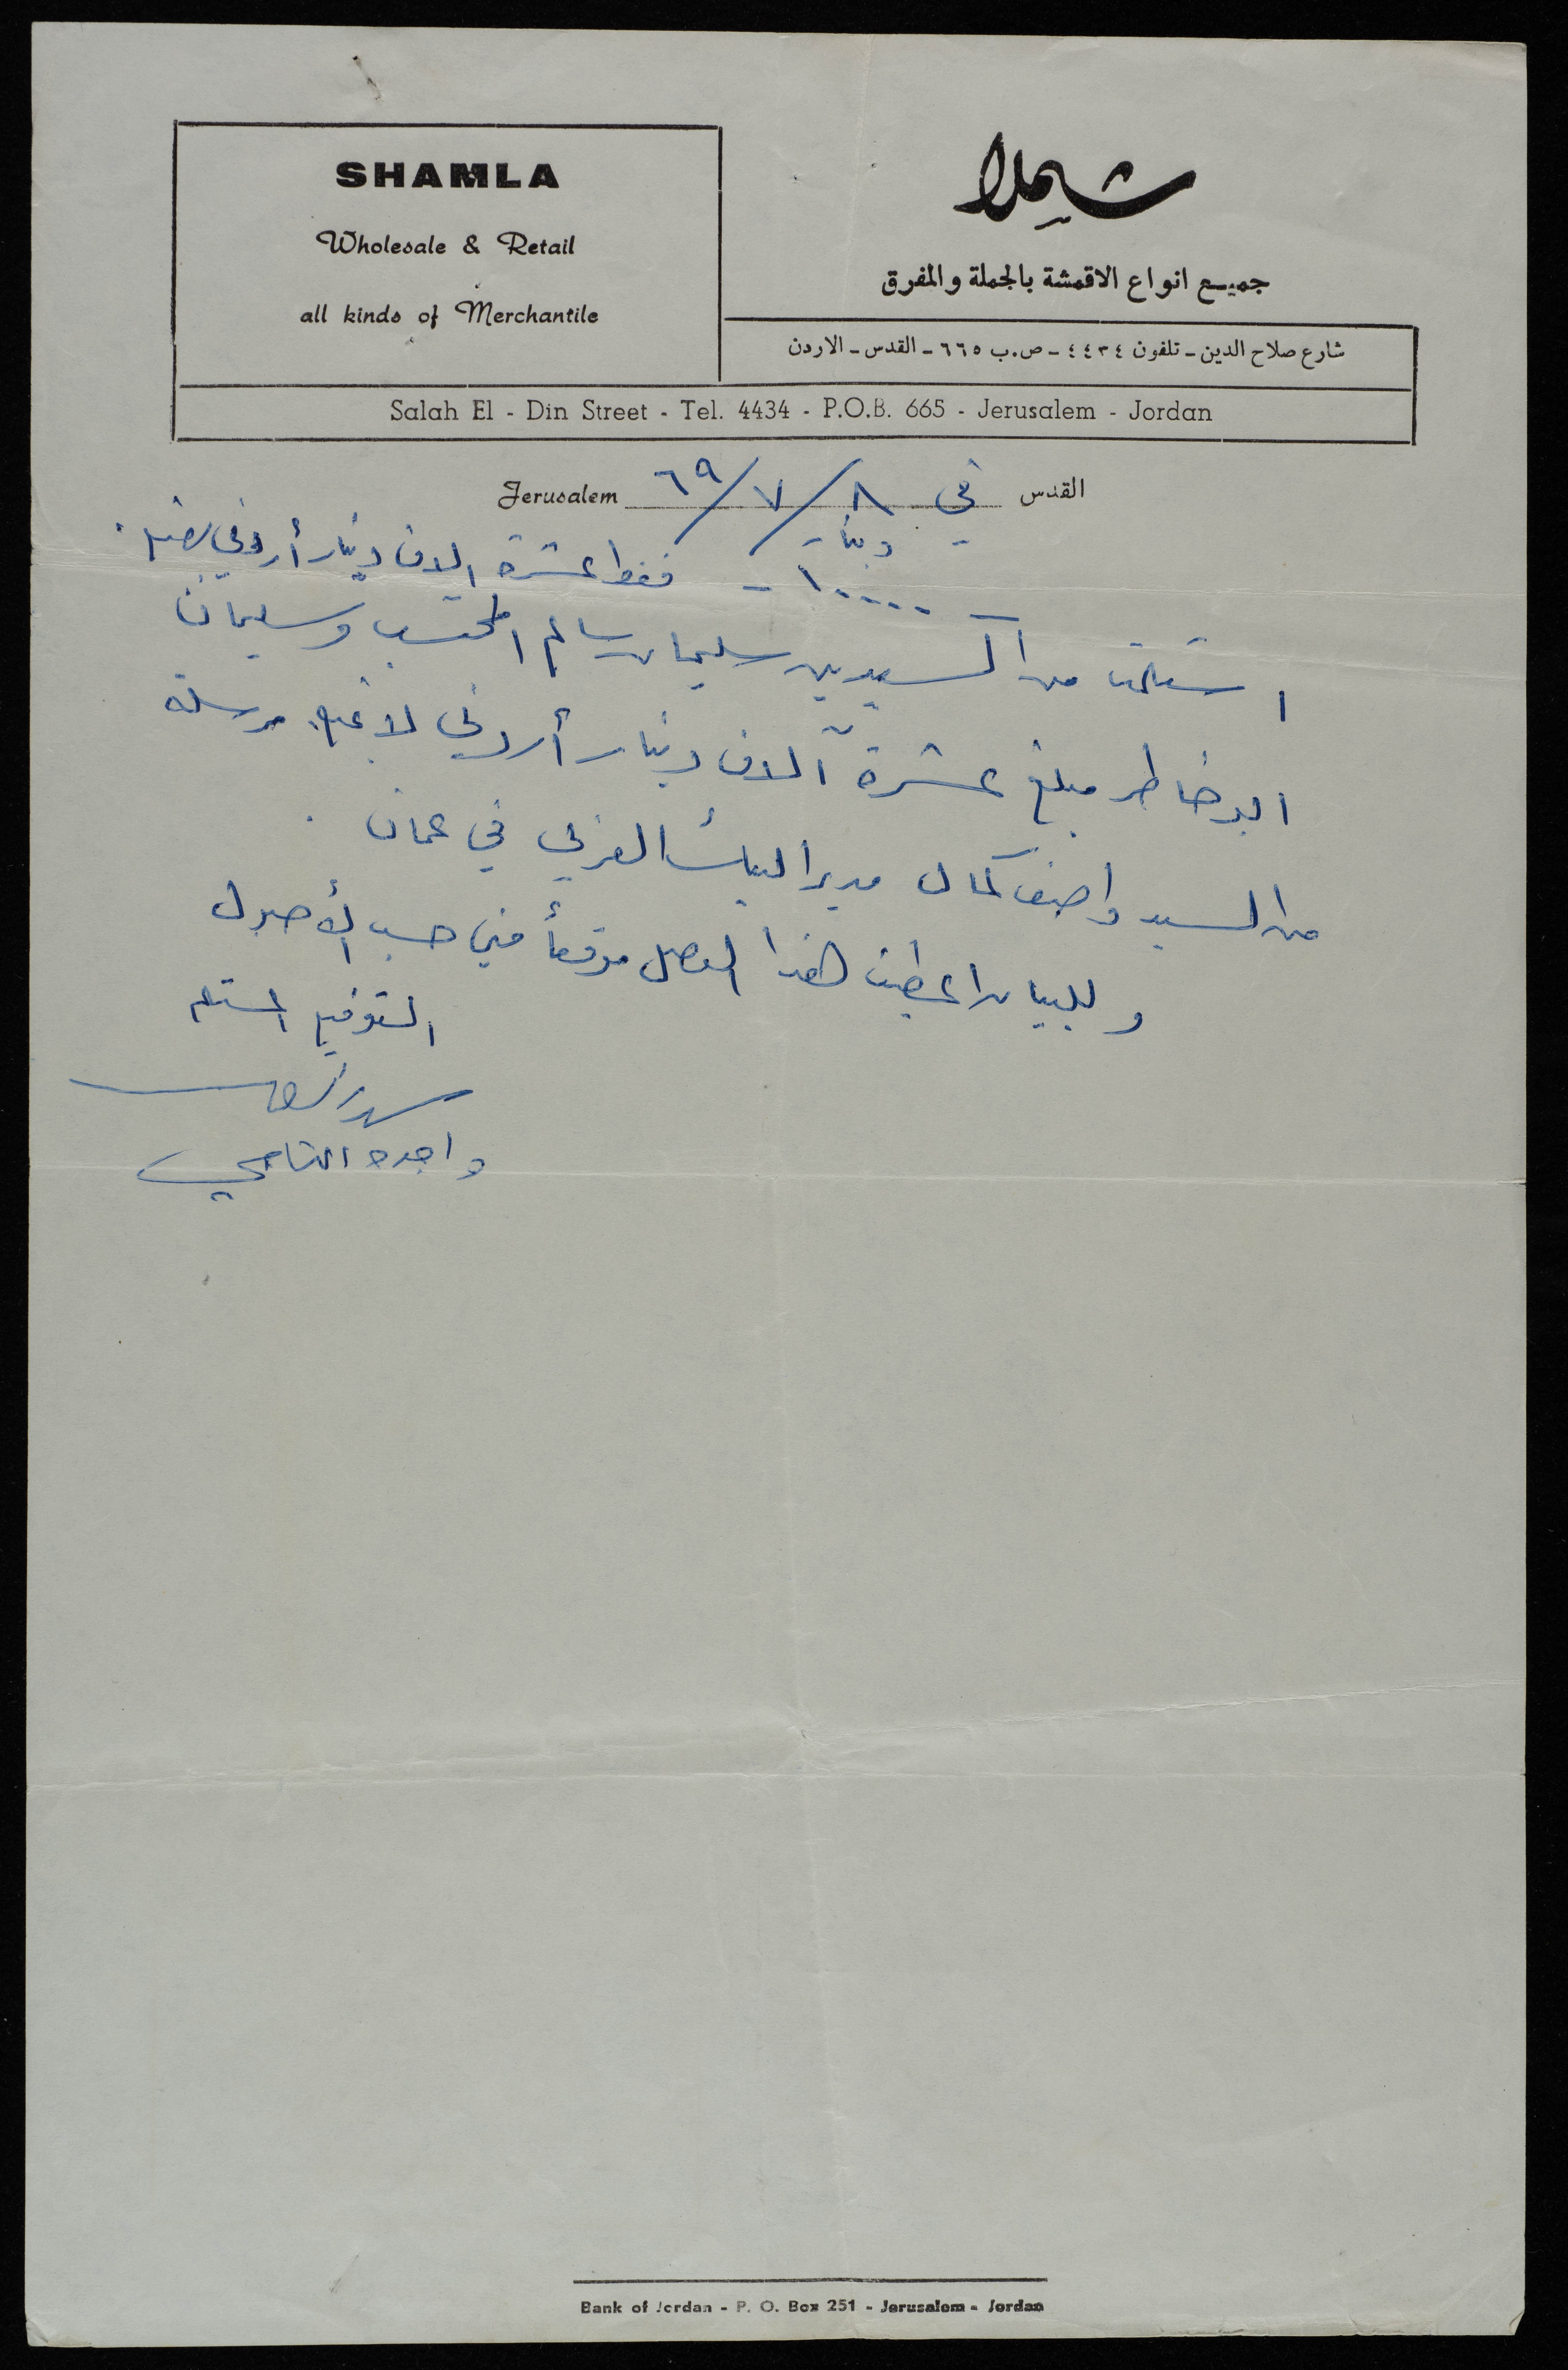 SHAMLA
Wholesale & Retail
all kinds of Merchantile
شيملا
جميع انواع الاقمشة بالجملة والمفرق
شارع صلاح الدين - تلفون ٤٤٣٤ - ص.ب ٦٦٥ - القدس - الاردن
Salah El - Din Street - Tel. 4434 - P.O.B. 665 - Jerusalem - Jordan
القدس في ٨/٧/٦٩ Jerusalem
دينار
١٠٠٠٠ - فقط عشرة الاف دينار أردني
استلمت من السيدين سليمان سالم المحتسب وسليمان
ابو خاطر مبلغ عشرة آلاف دينار أردني لا غير مرسلة
من السيد واصف كمال مدير البنك العربي في عمان.
وللبيان اعطيت هذا الوصل موقعاً مني حسب الأصول
التوقيع المستلم
واجده
Bank of Jordan - P. O. Box 251 - Jerusalem - Jordan